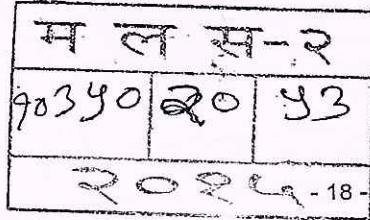 म ल स-२
१०३५० २० ५३
२०२५ - 18 -